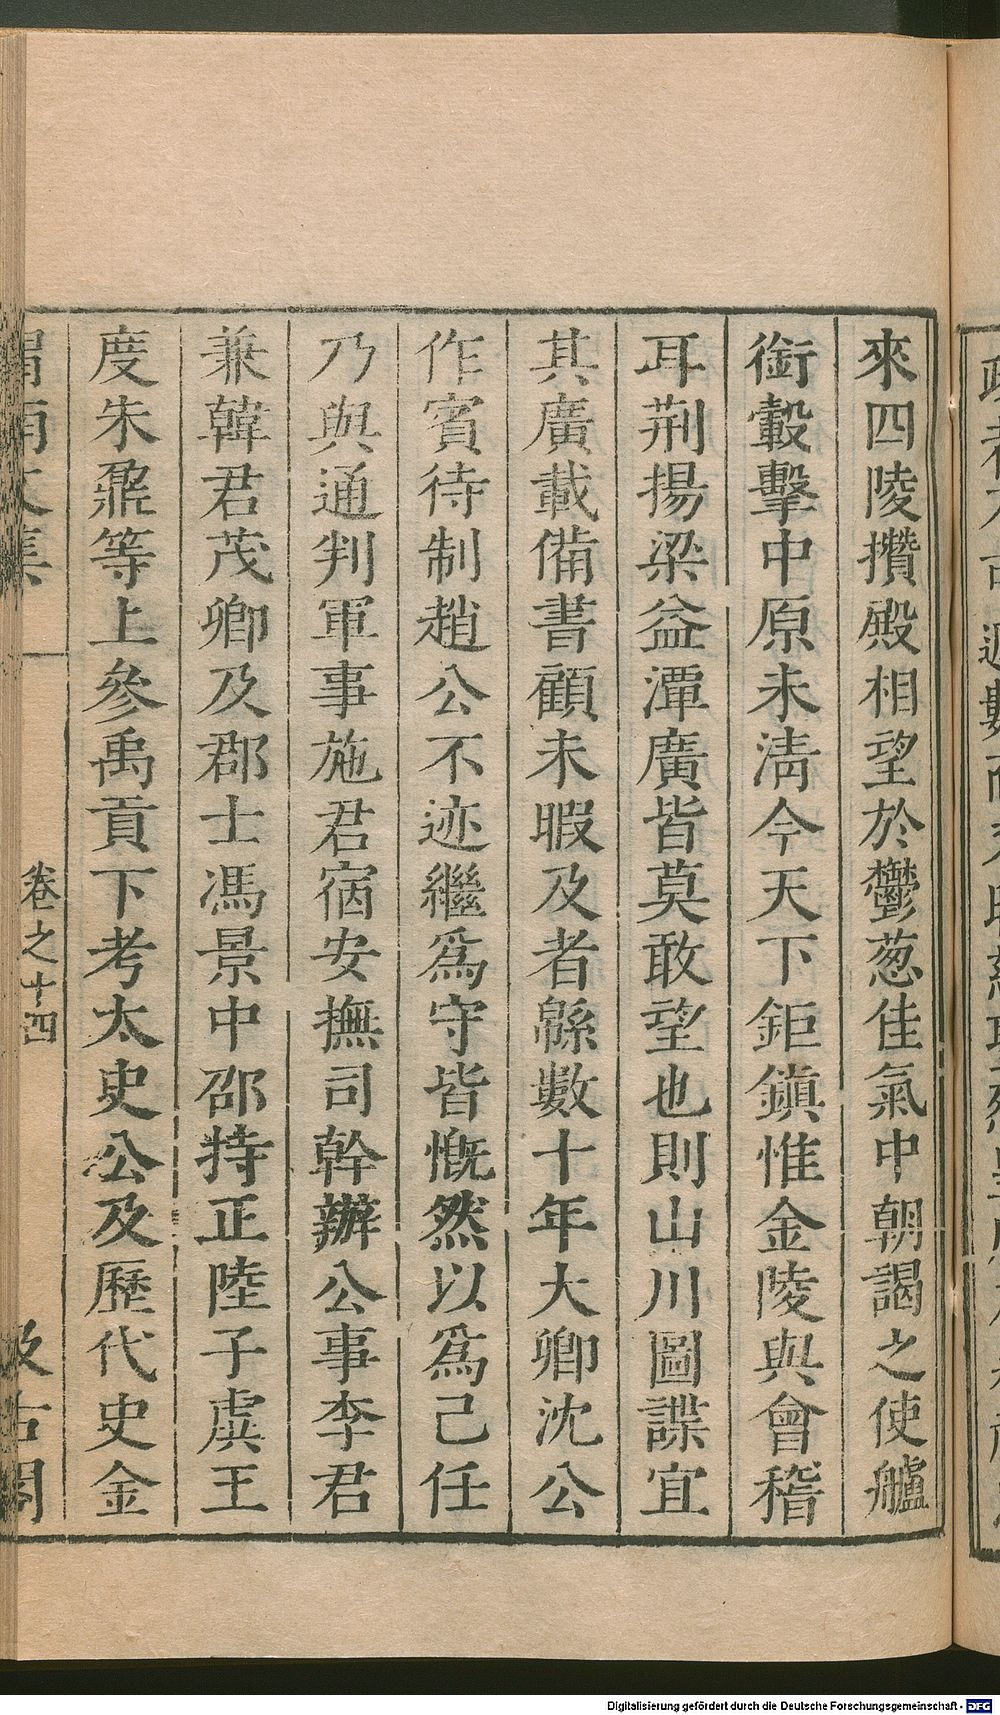 來四陵攢殿相望於鬱葱佳氣中朝謁之使艫
銜轂擊中原未淸今天下鉅鎭惟金陵與會稽
耳荆揚梁益潭廣皆莫敢望也則山川圖諜宜
其廣載備書顧未暇及者緜數十年大卿沈公
作賓待制趙公不迹繼爲守皆慨然以爲己任
乃與通判軍事施君宿安撫司幹辦公事李君
兼韓君茂卿及郡士馮景中邵持正陸子虡王
度朱鼐等上參禹貢下考太史公及歷代史金
渭南文集
卷之十四
汲古閣
Digitalisierung gefördert durch die Deutsche Forschungsgemeinschaft - DFG